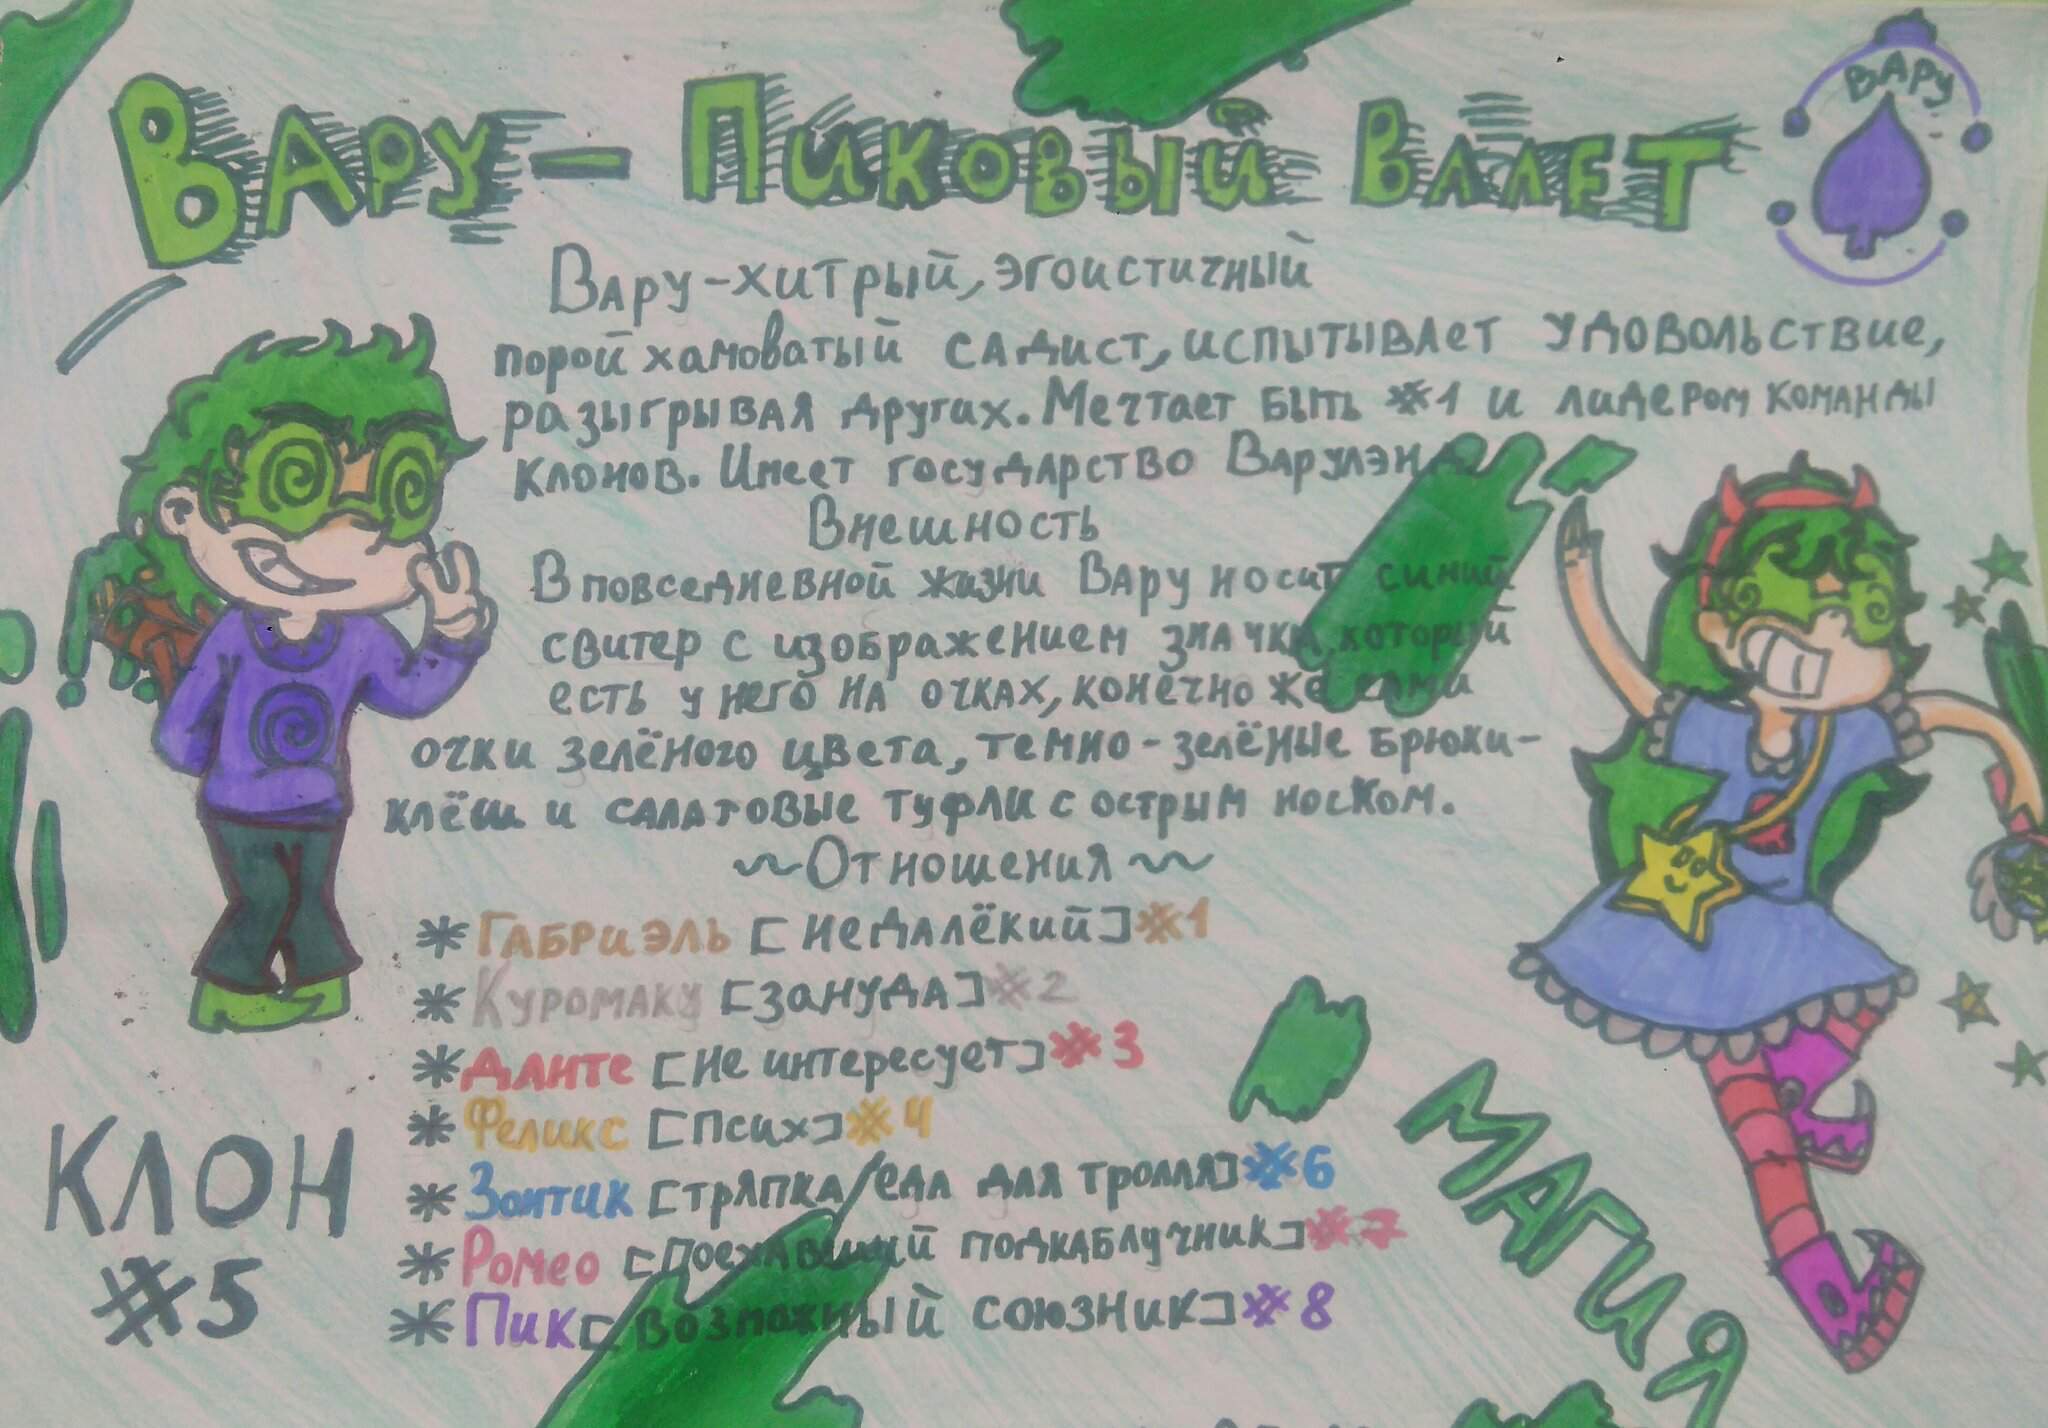 Вару – Пиковый Валет
Вару
Вару-хитрый, эгоистичный
порой хамоватый садист, испытывает удовольствие,
разыгрывая других. Мечтает быть #1 и лидером команды
клонов. Имеет государство Варулэнд
Внешность
В повседневной жизни Вару носит синий
свитер с изображением значка, который
есть у него на очках, конечно же сами
очки зелёного цвета, темно-зелёные брюки-
клёш и салатовые туфли с острым носком.
~Отношения~
*Габриэль [недалёкий] #1
*Куромаку [зануда] #2
*Данте [не интересует] #3
*Феликс [псих] #4
*Зонтик [тряпка/еда для тролля] #6
*Ромео [поехавший подкаблучник] #7
*Пик [возможный союзник] #8
Клон
#5
Магия